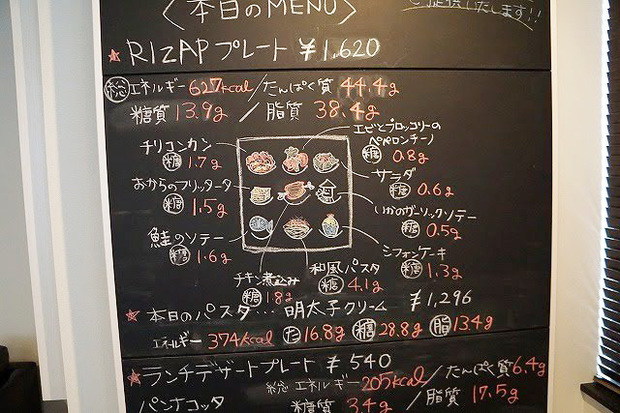 〈本日のMENU〉
ご提供いたします!!
★RIZAPプレート ¥1,620
総エネルギー 627kcal/たんぱく質 44.4g
糖質 13.9g / 脂質 38.4g
エビとブロッコリーの
ペペロンチーノ
糖 0.8g
チリコンカン
糖 1.7g
サラダ
糖 0.6g
おからのフリッタータ
糖 1.5g
いかのガーリックソテー
糖 0.5g
鮭のソテー
糖 1.6g
シフォンケーキ
糖 1.3g
チキン煮込み
糖 1.8g
和風パスタ
糖 4.1g
★本日のパスタ… 明太子クリーム ¥1,296
エネルギー 374kcal た 16.8g 糖 28.8g 脂 13.4g
★ランチデザートプレート ¥540
総エネルギー 205kcal/たんぱく質 6.4g
パンナコッタ 糖質 3.4g /脂質 17.5g